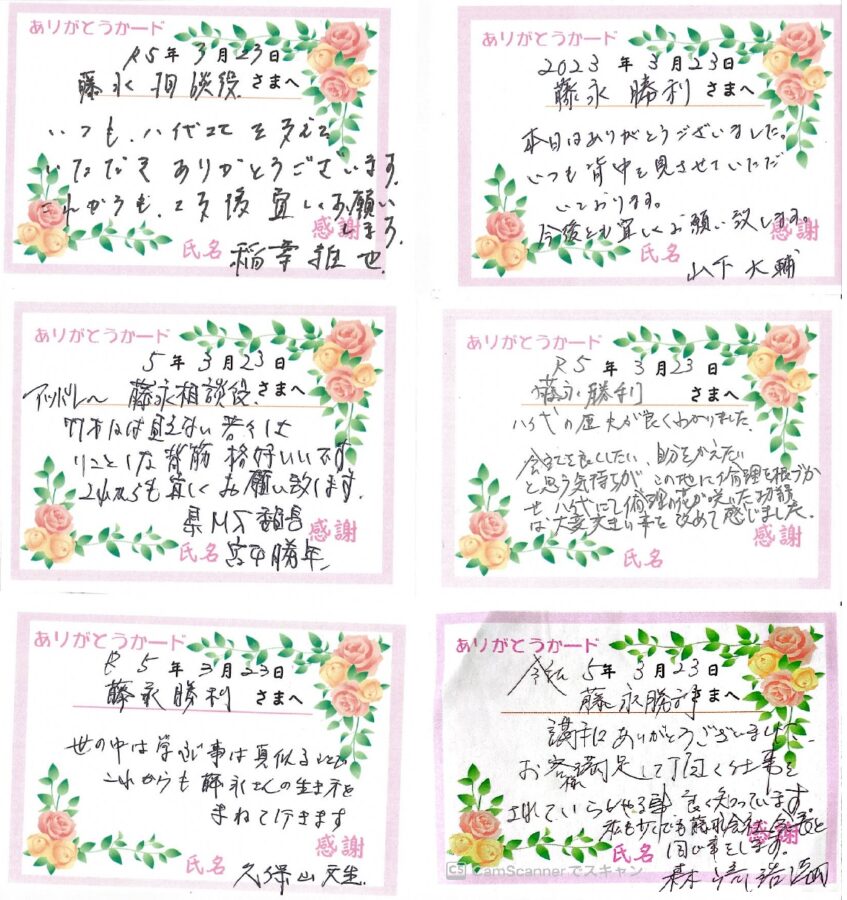 ありがとうカード
R5年 3月23日
藤永相談役 さまへ
いつも、八代 を支えて
いただき ありがとうございます。
これからも、 宜しくお願い
します。
感謝
氏名 稲 也
ありがとうカード
2023年 3月23日
藤永 勝利 さまへ
本日はありがとうございました。
いつも背中を見させていただ
いております。
今後とも宜しくお願い致します。
感謝
氏名
山下 大輔
ありがとうカード
5年 3月23日
藤永相談役 さまへ
には見えない若々しさ
背筋 格好いいです
これからも宜しくお願い致します。
県
感謝
氏名 宮本勝年
ありがとうカード
R5年 3月23日
藤永勝利 さまへ
八代の歴史が良くわかりました。
会社を良くしたい、自分をかえたい
と思う気持ちが この地に倫理を根づか
せ 八代にて倫理の花が咲いた功績
は大変大きい事を改めて感じました。
感謝
氏名
ありがとうカード
R5年 3月23日
藤永勝利 さまへ
世の中は学ぶ事は真似ること
これからも藤永さんの生き方を
まねて行きます
感謝
氏名
久保山 文生
ありがとうカード
令和5年 3月23日
藤永勝利 さまへ
講話ありがとうございました
お客様満足して頂く仕事を
されていらっしゃる事 良く知っています。
私も少しでも藤永会 と
同じ事をします。
感謝
氏名
森
CS CamScannerでスキャン